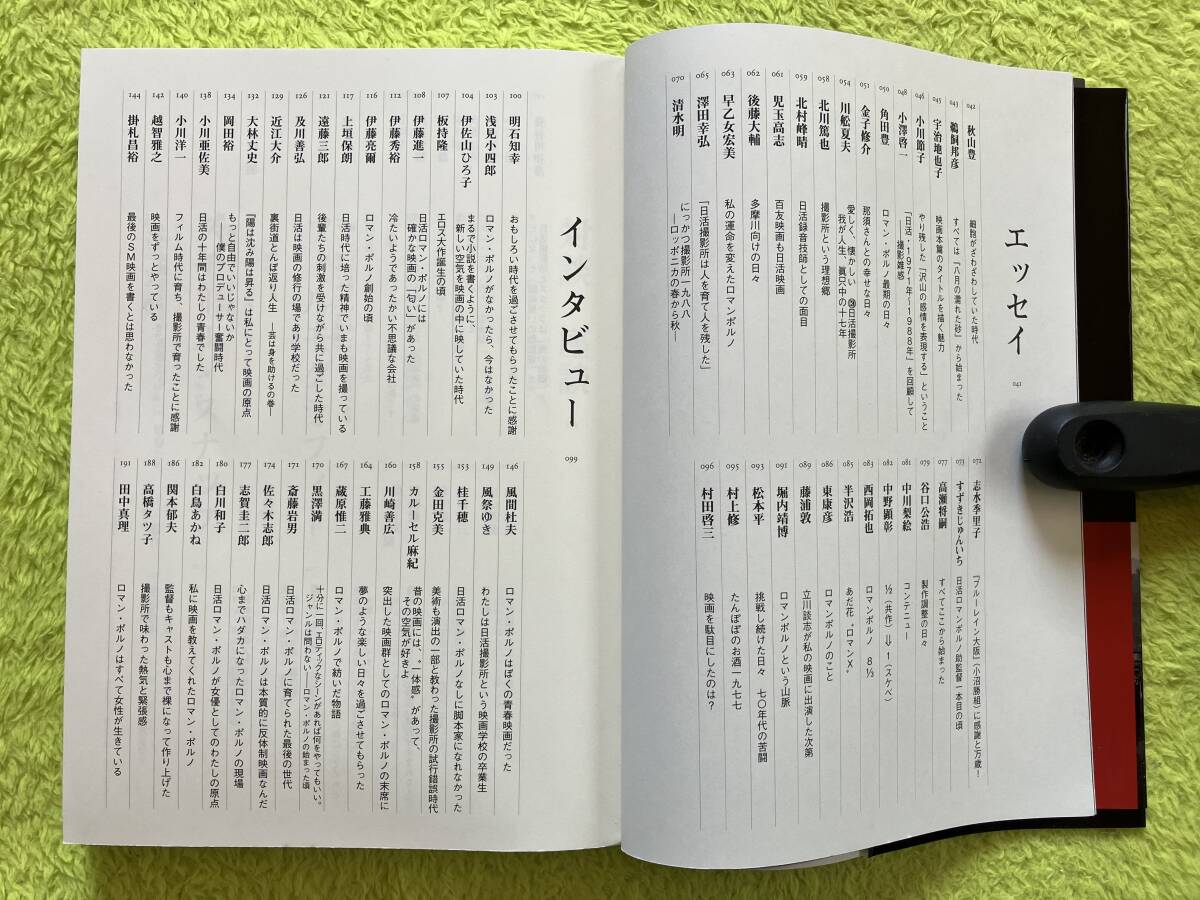 エッセイ
041
042 秋山豊 細胞がざわざわしていた時代
043 鵜飼邦彦 すべては「八月の濡れた砂」から始まった
045 宇治地也子 映画本篇のタイトルを描く魅力
046 小川節子 やり残した「沢山の感情を表現する」ということ
048 小澤啓一 「日活・1971年〜1988年」を回顧して
―撮影雑感
050 角田豊 ロマン・ポルノ最期の日々
051 金子修介 那須さんとの幸せな日々
054 川舩夏夫 愛しく、懐かしい・㊐日活撮影所
我が人生、真只中の十七年
058 北川篤也 撮影所という理想郷
059 北村峰晴 日活録音技師としての面目
061 児玉高志 百友映画も日活映画
062 後藤大輔 多摩川向けの日々
063 早乙女宏美 私の運命を変えたロマンポルノ
065 澤田幸弘 「日活撮影所は人を育て人を残した」
070 清水明 にっかつ撮影所一九八八
―ロッポニカの春から秋―
072 志水季里子 『ブルーレイン大阪』(小沼勝組)に感謝と万歳!
073 すずきじゅんいち 日活ロマンポルノ助監督一本目の頃
077 高瀬将嗣 すべてここから始まった
079 谷口公浩 製作調整の日々
081 中川梨絵 コンテニュー
082 中野顕彰 ½(共作)⇩1(スケベ)
083 西岡拓也 ロマンポルノ 8⅓
085 半沢浩 あだ花〝ロマンX〟
086 東康彦 ロマンポルノのこと
089 藤浦敦 立川談志が私の映画に出演した次第
091 堀内靖博 ロマンポルノという山脈
093 松本平 挑戦し続けた日々 七〇年代の苦闘
095 村上修 たんぽぽのお酒一九七七
096 村田啓三 映画を駄目にしたのは?
インタビュー
099
100 明石知幸 おもしろい時代を過ごさせてもらったことに感謝
103 浅見小四郎 ロマン・ポルノがなかったら、今はなかった
104 伊佐山ひろ子 まるで小説を書くように、
新しい空気を映画の中に映していた時代
107 板持隆 エロス大作誕生の頃
108 伊藤進一 日活ロマン・ポルノには
確かな映画の「匂い」があった
112 伊藤秀裕 冷たいようであったかい不思議な会社
116 伊藤亮爾 ロマン・ポルノ創始の頃
117 上垣保朗 日活時代に培った精神でいまも映画を撮っている
121 遠藤三郎 後輩たちの刺激を受けながら共に過ごした時代
126 及川善弘 日活は映画の修行の場であり学校だった
129 近江大介 裏街道とんぼ返り人生 ―芸は身を助けるの巻―
132 大林丈史 『陽は沈み陽は昇る』は私にとって映画の原点
134 岡田裕 もっと自由でいいじゃないか
――僕のプロデューサー奮闘時代
138 小川亜佐美 日活の十年間はわたしの青春でした
140 小川洋一 フィルム時代に育ち、撮影所で育ったことに感謝
142 越智雅之 映画をずっとやっている
144 掛札昌裕 最後のSM映画を書くとは思わなかった
146 風間杜夫 ロマン・ポルノはぼくの青春映画だった
149 風祭ゆき わたしは日活撮影所という映画学校の卒業生
153 桂千穂 日活ロマン・ポルノなしに脚本家になれなかった
155 金田克美 美術も演出の一部と教わった撮影所の試行錯誤時代
158 カルーセル麻紀 昔の映画には、〝一体感〟があって、
その空気が好きよ
160 川崎善広 突出した映画群としてのロマン・ポルノの末席に
164 工藤雅典 夢のような楽しい日々を過ごさせてもらった
167 蔵原惟二 ロマン・ポルノで紡いだ物語
170 黒澤満 十分に一回、エロティックなシーンがあれば何をやってもいい。
ジャンルは問わない――ロマン・ポルノの始まった頃
171 斎藤岩男 日活ロマン・ポルノに育てられた最後の世代
174 佐々木志郎 日活ロマン・ポルノは本質的に反体制映画なんだ
177 志賀圭二郎 心までハダカになったロマン・ポルノの現場
180 白川和子 日活ロマン・ポルノが女優としてのわたしの原点
182 白鳥あかね 私に映画を教えてくれたロマン・ポルノ
186 関本郁夫 監督もキャストも心まで裸になって作り上げた
188 高橋タツ子 撮影所で味わった熱気と緊張感
191 田中真理 ロマン・ポルノはすべて女性が生きている